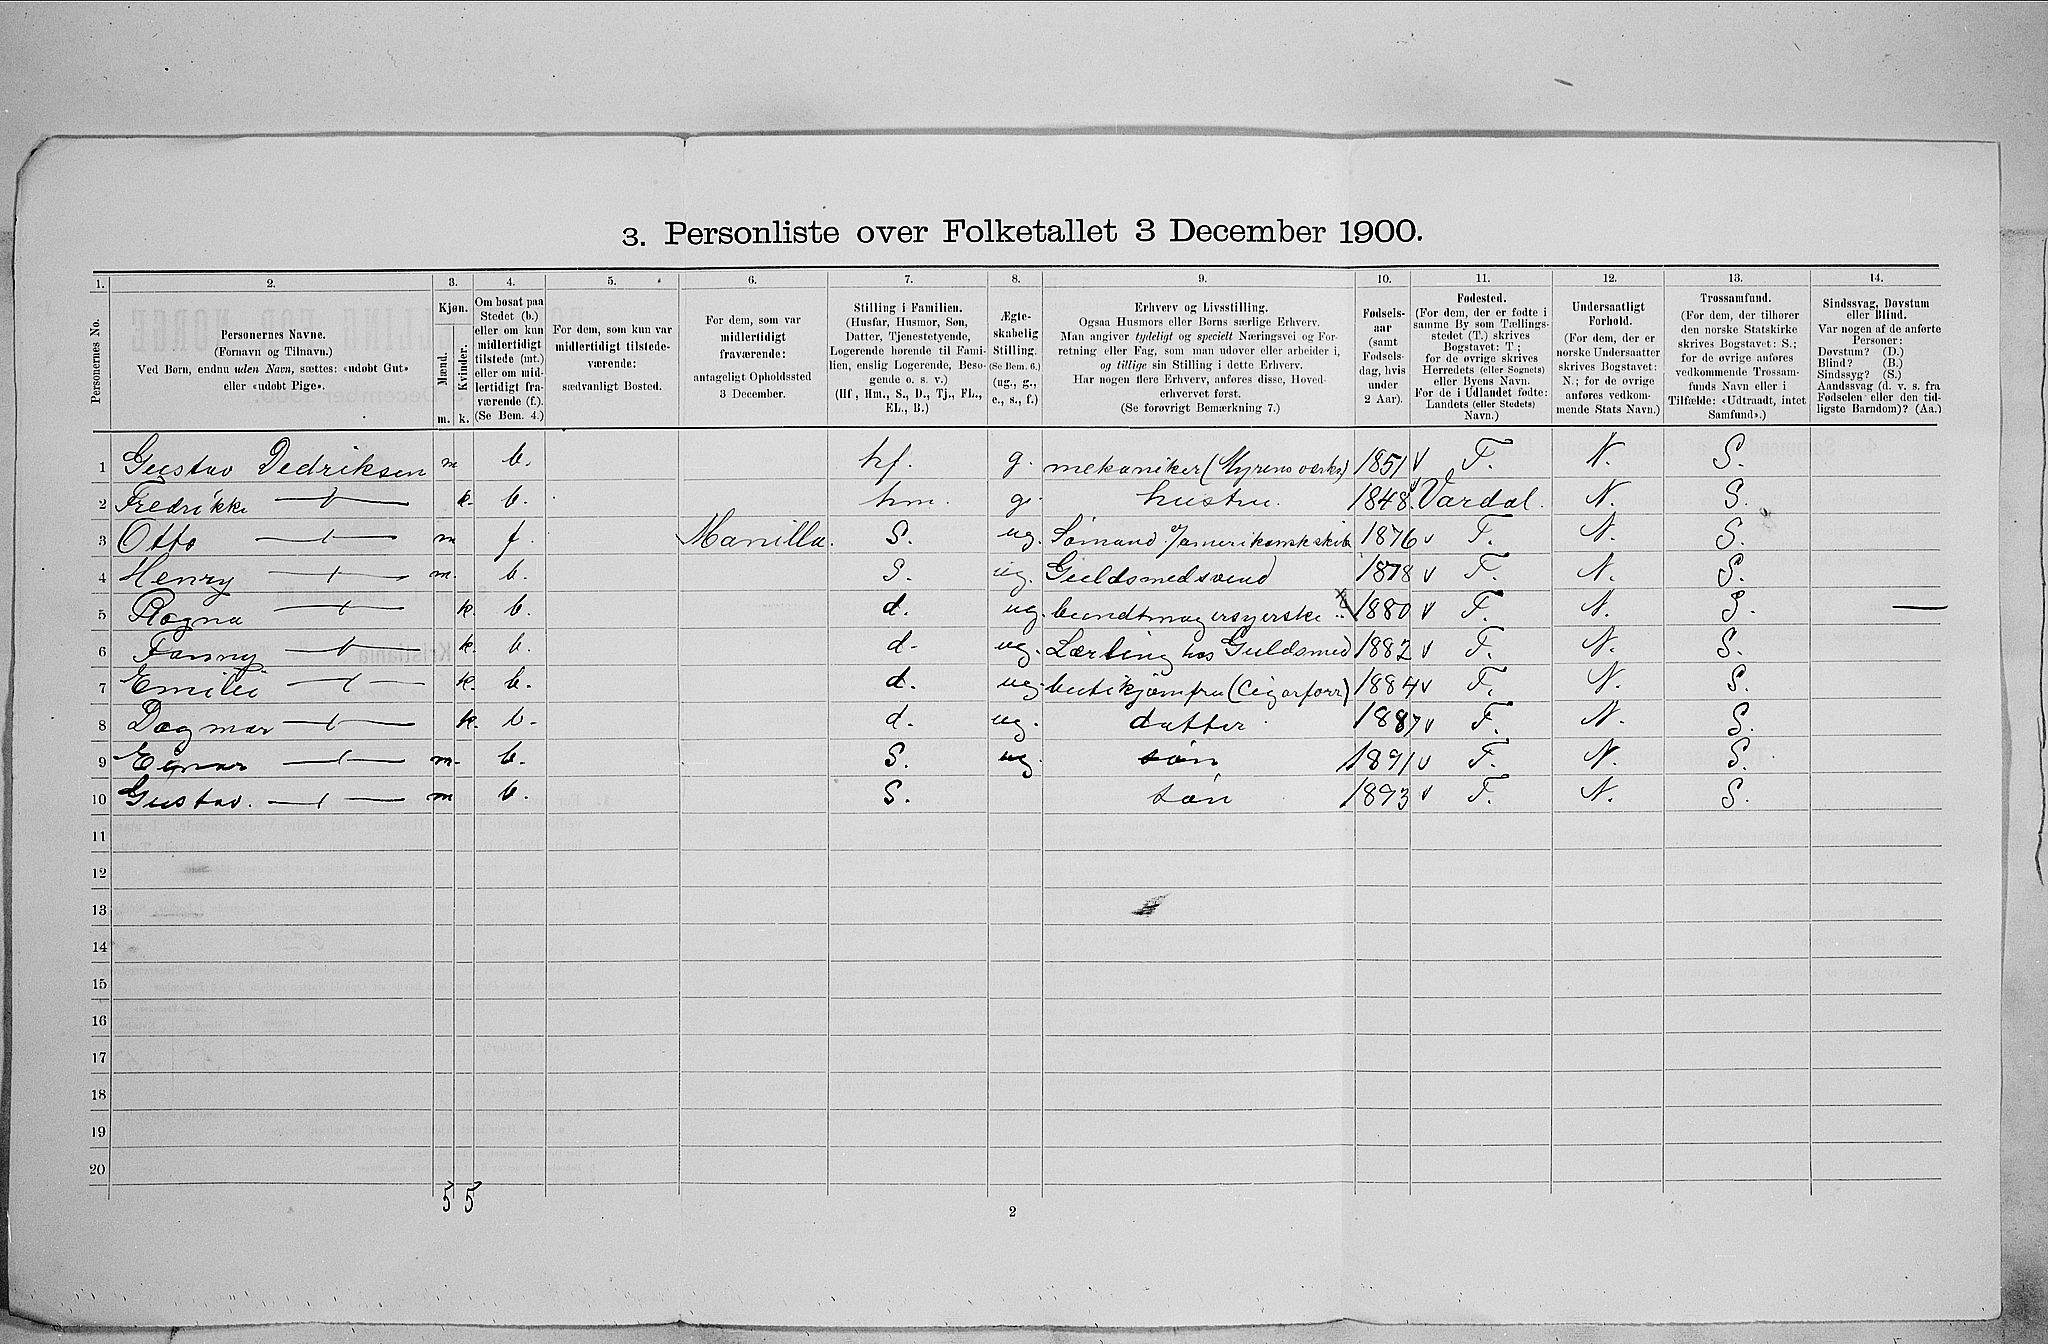 3. Personliste over Folketallet 3 December 1900.
1. 2. 3. 4. 5. 6. 7. 8. 9. 10. 11. 12. 13. 14.
Personernes No.
Personernes Navne.
(Fornavn og Tilnavn.)
Ved Børn, endnu uden Navn, sættes: «udøbt Gut»
eller «udøbt Pige».
Kjøn.
Mænd.
Kvinder.
m. k.
Om bosat paa
Stedet (b.)
eller om kun
midlertidigt
tilstede (mt.)
eller om mid-
lertidigt fra-
værende (f.).
(Se Bem. 4.)
For dem, som kun var
midlertidigt tilstede-
værende:
sædvanligt Bosted.
For dem, som var
midlertidigt
fraværende:
antageligt Opholdssted
3 December.
Stilling i Familien.
(Husfar, Husmor, Søn,
Datter, Tjenestetyende,
Logerende hørende til Fami-
lien, enslig Logerende, Besø-
gende o. s. v.)
(Hf., Hm., S., D., Tj., FL.,
EL., B.)
Ægte-
skabelig
Stilling.
(Se Bem. 6.)
(ug., g.,
e., s., f.)
Erhverv og Livsstilling.
Ogsaa Husmors eller Børns særlige Erhverv.
Man angiver tydeligt og specielt Næringsvei og For-
retning eller Fag, som man udøver eller arbeider i,
og tillige sin Stilling i dette Erhverv.
Har nogen flere Erhverv, anføres disse, Hoved-
erhvervet først.
(Se forøvrigt Bemærkning 7.)
Fødsels-
aar
(samt
Fødsels-
dag, hvis
under
2 Aar).
Fødested.
(For dem, der er fødte i
samme By som Tællings-
stedet (T.) skrives
Bogstavet: T;
for de øvrige skrives
Herredets (eller Sognets)
eller Byens Navn.
For de i Udlandet fødte:
Landets (eller Stedets)
Navn.)
Undersaatligt
Forhold.
(For dem, der er
norske Undersaatter
skrives Bogstavet:
N.; for de øvrige
anføres vedkom-
mende Stats Navn.)
Trossamfund.
(For dem, der tilhører
den norske Statskirke
skrives Bogstavet: S.;
for de øvrige anføres
vedkommende Trossam-
funds Navn eller i
Tilfælde: «Udtraadt, intet
Samfund».)
Sindssvag, Døvstum
eller Blind.
Var nogen af de anførte
Personer:
Døvstum? (D.)
Blind? (B.)
Sindssyg? (S.)
Aandssvag (d. v. s. fra
Fødselen eller den tid-
ligste Barndom)? (Aa.)
1 Gustav Dedriksen m b. hf. g. mekaniker (Myrens værks) 1851 T. N. S.
2 Fredrikke k. b. hm. g. hustru. 1848. Vardal. N. S.
3 Otto m f. Manilla. S. ug. Sømand a/ amerikansk skib 1876 T. N. S.
4 Henry m. b. S. ug. Guldsmedsvend 1878 T. N. S.
5 Ragna k. b. d. ug. bundtmagersyerske 1880 T. N. S. —
6 Fanny k. b. d. ug. Lærling hos Guldsmed 1882 T. N. S.
7 Emilie k. b. d. ug. butikjomfru (Cigarforr) 1884 T. N. S.
8 Dagmar k. b. d. ug. datter 1887 T. N. S.
9 Einar m. b. S. ug søn 1891 T. N. S.
10 Gustav. m b. S. søn 1893 T. N. S.
11
12
13
14
15
16
17
18
19
20
5 5
2